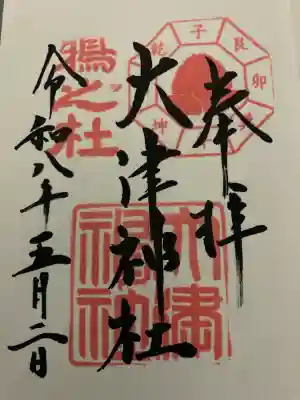 奉拝
大津神社
令和八年五月二日
子
艮
卯
坤
乾
之社
大津
神社